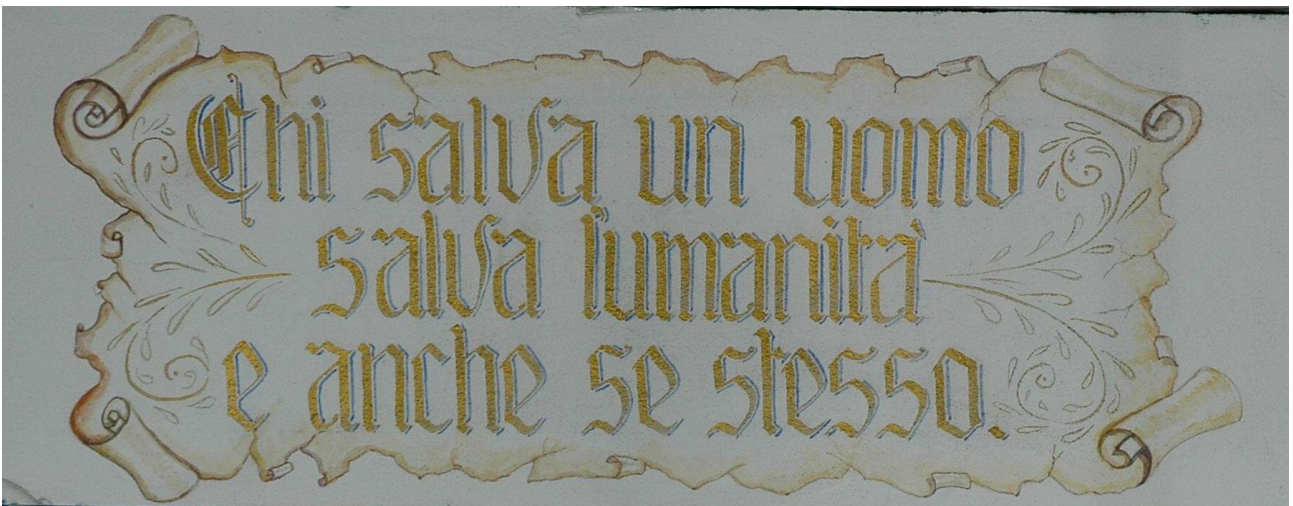 Chi salva un uomo
salva l'umanità
e anche se stesso.